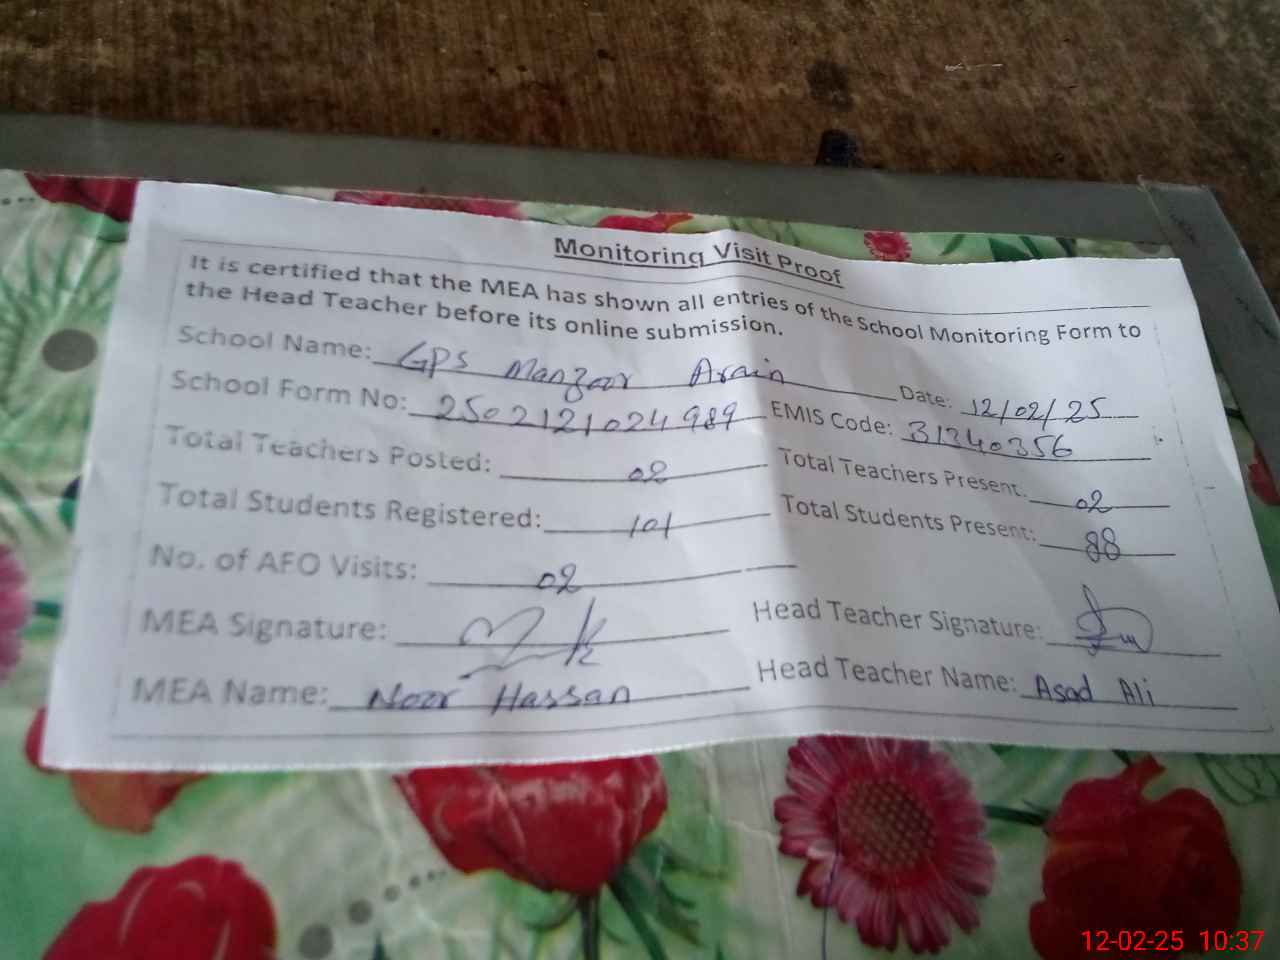 Monitoring Visit Proof
It is certified that the MEA has shown all entries of the School Monitoring Form to
the Head Teacher before its online submission.
School Name: GPS Manzoor Arain Date: 12/02/25
School Form No: 2502121024989 EMIS Code: 31240356
Total Teachers Posted: 02 Total Teachers Present: 02
Total Students Registered: 101 Total Students Present: 88
No. of AFO Visits: 02
MEA Signature: Head Teacher Signature:
MEA Name: Noor Hassan Head Teacher Name: Asad Ali
12-02-25 10:37